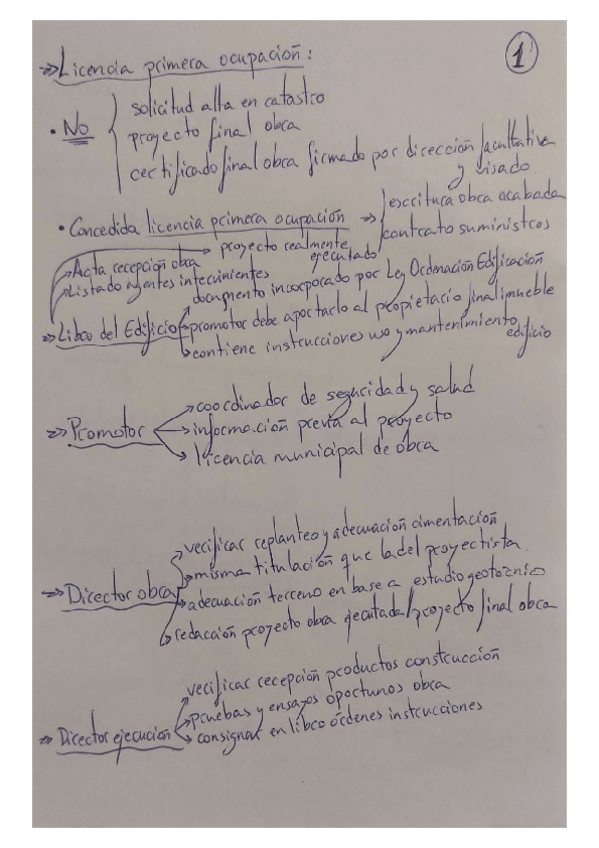 ⇒ Licencia primera ocupación:
1
• No
solicitud alta en catastro
proyecto final obra
certificado final obra firmado por dirección facultativa
y visado
• Concedida licencia primera ocupación →
escritura obra acabada
contrato suministros
proyecto realmente
ejecutado
Acta recepción obra
Listado agentes intervinientes
documento incorporado por Ley Ordenación Edificación
⇒ Libro del Edificio
promotor debe aportarlo al propietario final inmueble
contiene instrucciones uso y mantenimiento
edificio
⇒ Promotor
coordinador de seguridad y salud
información previa al proyecto
licencia municipal de obra
⇒ Director obra
verificar replanteo y adecuación cimentación
misma titulación que la del proyectista
adecuación terreno en base a estudio geotécnio
redacción proyecto obra ejecutada/proyecto final obra
⇒ Director ejecución
verificar recepción productos construcción
pruebas y ensayos oportunos obra
consignar en libro órdenes instrucciones